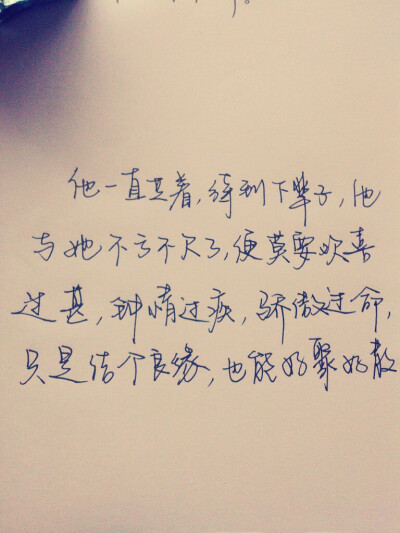 他一直其着,待到下辈子,他
与她不亏不欠了,便莫要欢喜
过甚,钟情过疾,骄傲过命,
只是结个良缘,也能好聚好散